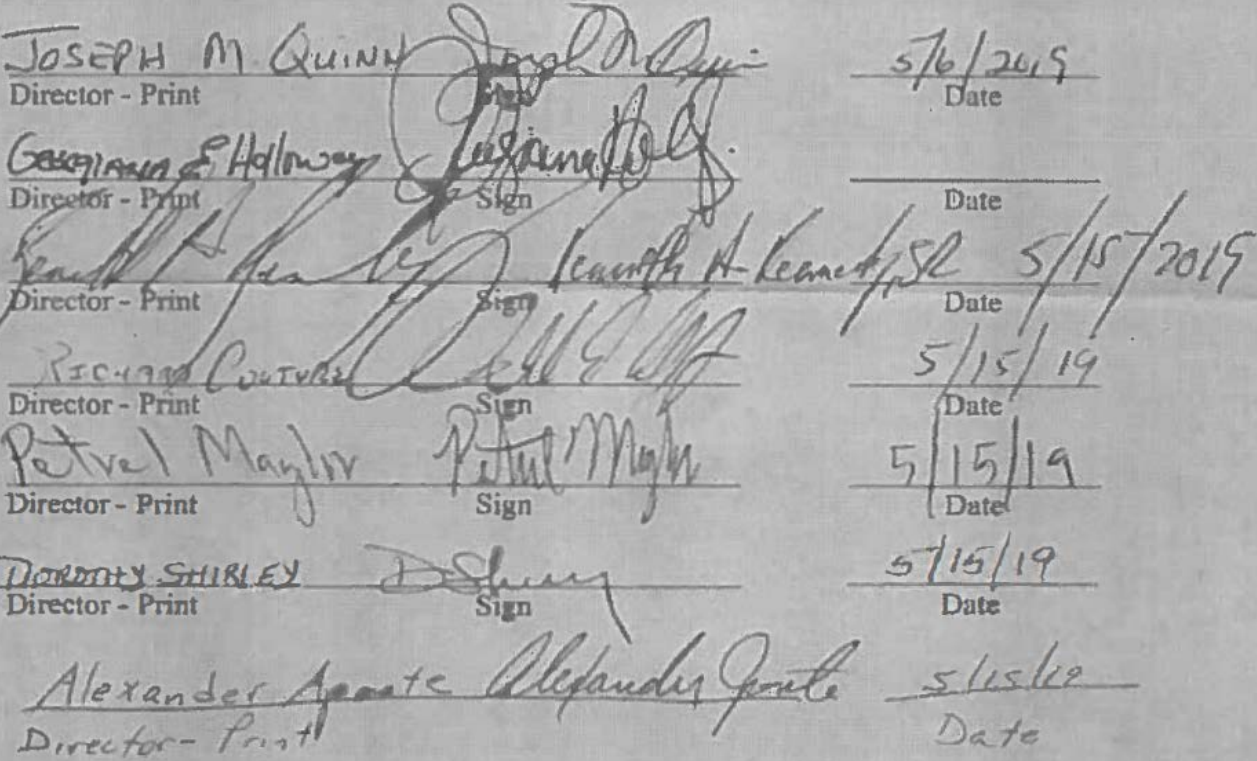 JOSEPH M. QUINN Joseph M Quinn 5/6/2019
Director - Print Sign Date
Georgianna E Holloway
Director - Print Sign Date
Kenneth A Kennedy, SR 5/15/2019
Director - Print Sign Date
RICHARD COUTURE 5/15/19
Director - Print Sign Date
Petvel Maylor Petvel Maylor 5/15/19
Director - Print Sign Date
DOROTHY SHIRLEY D Shirley 5/15/19
Director - Print Sign Date
Alexander Aponte Alexander Aponte 5/15/19
Director - Print Date